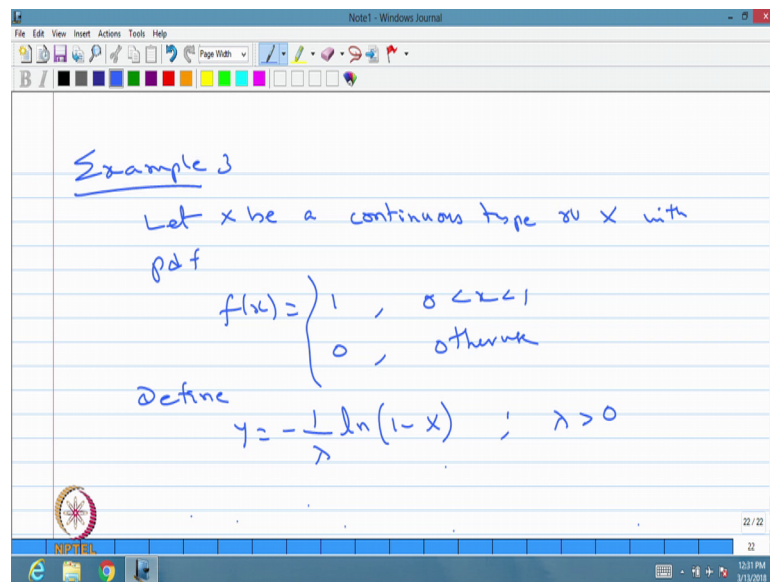 Note1 - Windows Journal
File Edit View Insert Actions Tools Help
Page Width
B I
Example 3
Let X be a continuous type rv X with
pdf
f(x) = { 1 , 0 < x < 1
0 , otherwise
Define
Y = - 1/λ ln (1 - X) ; λ > 0
22 / 22
NPTEL
22
12:31 PM
3/13/2018